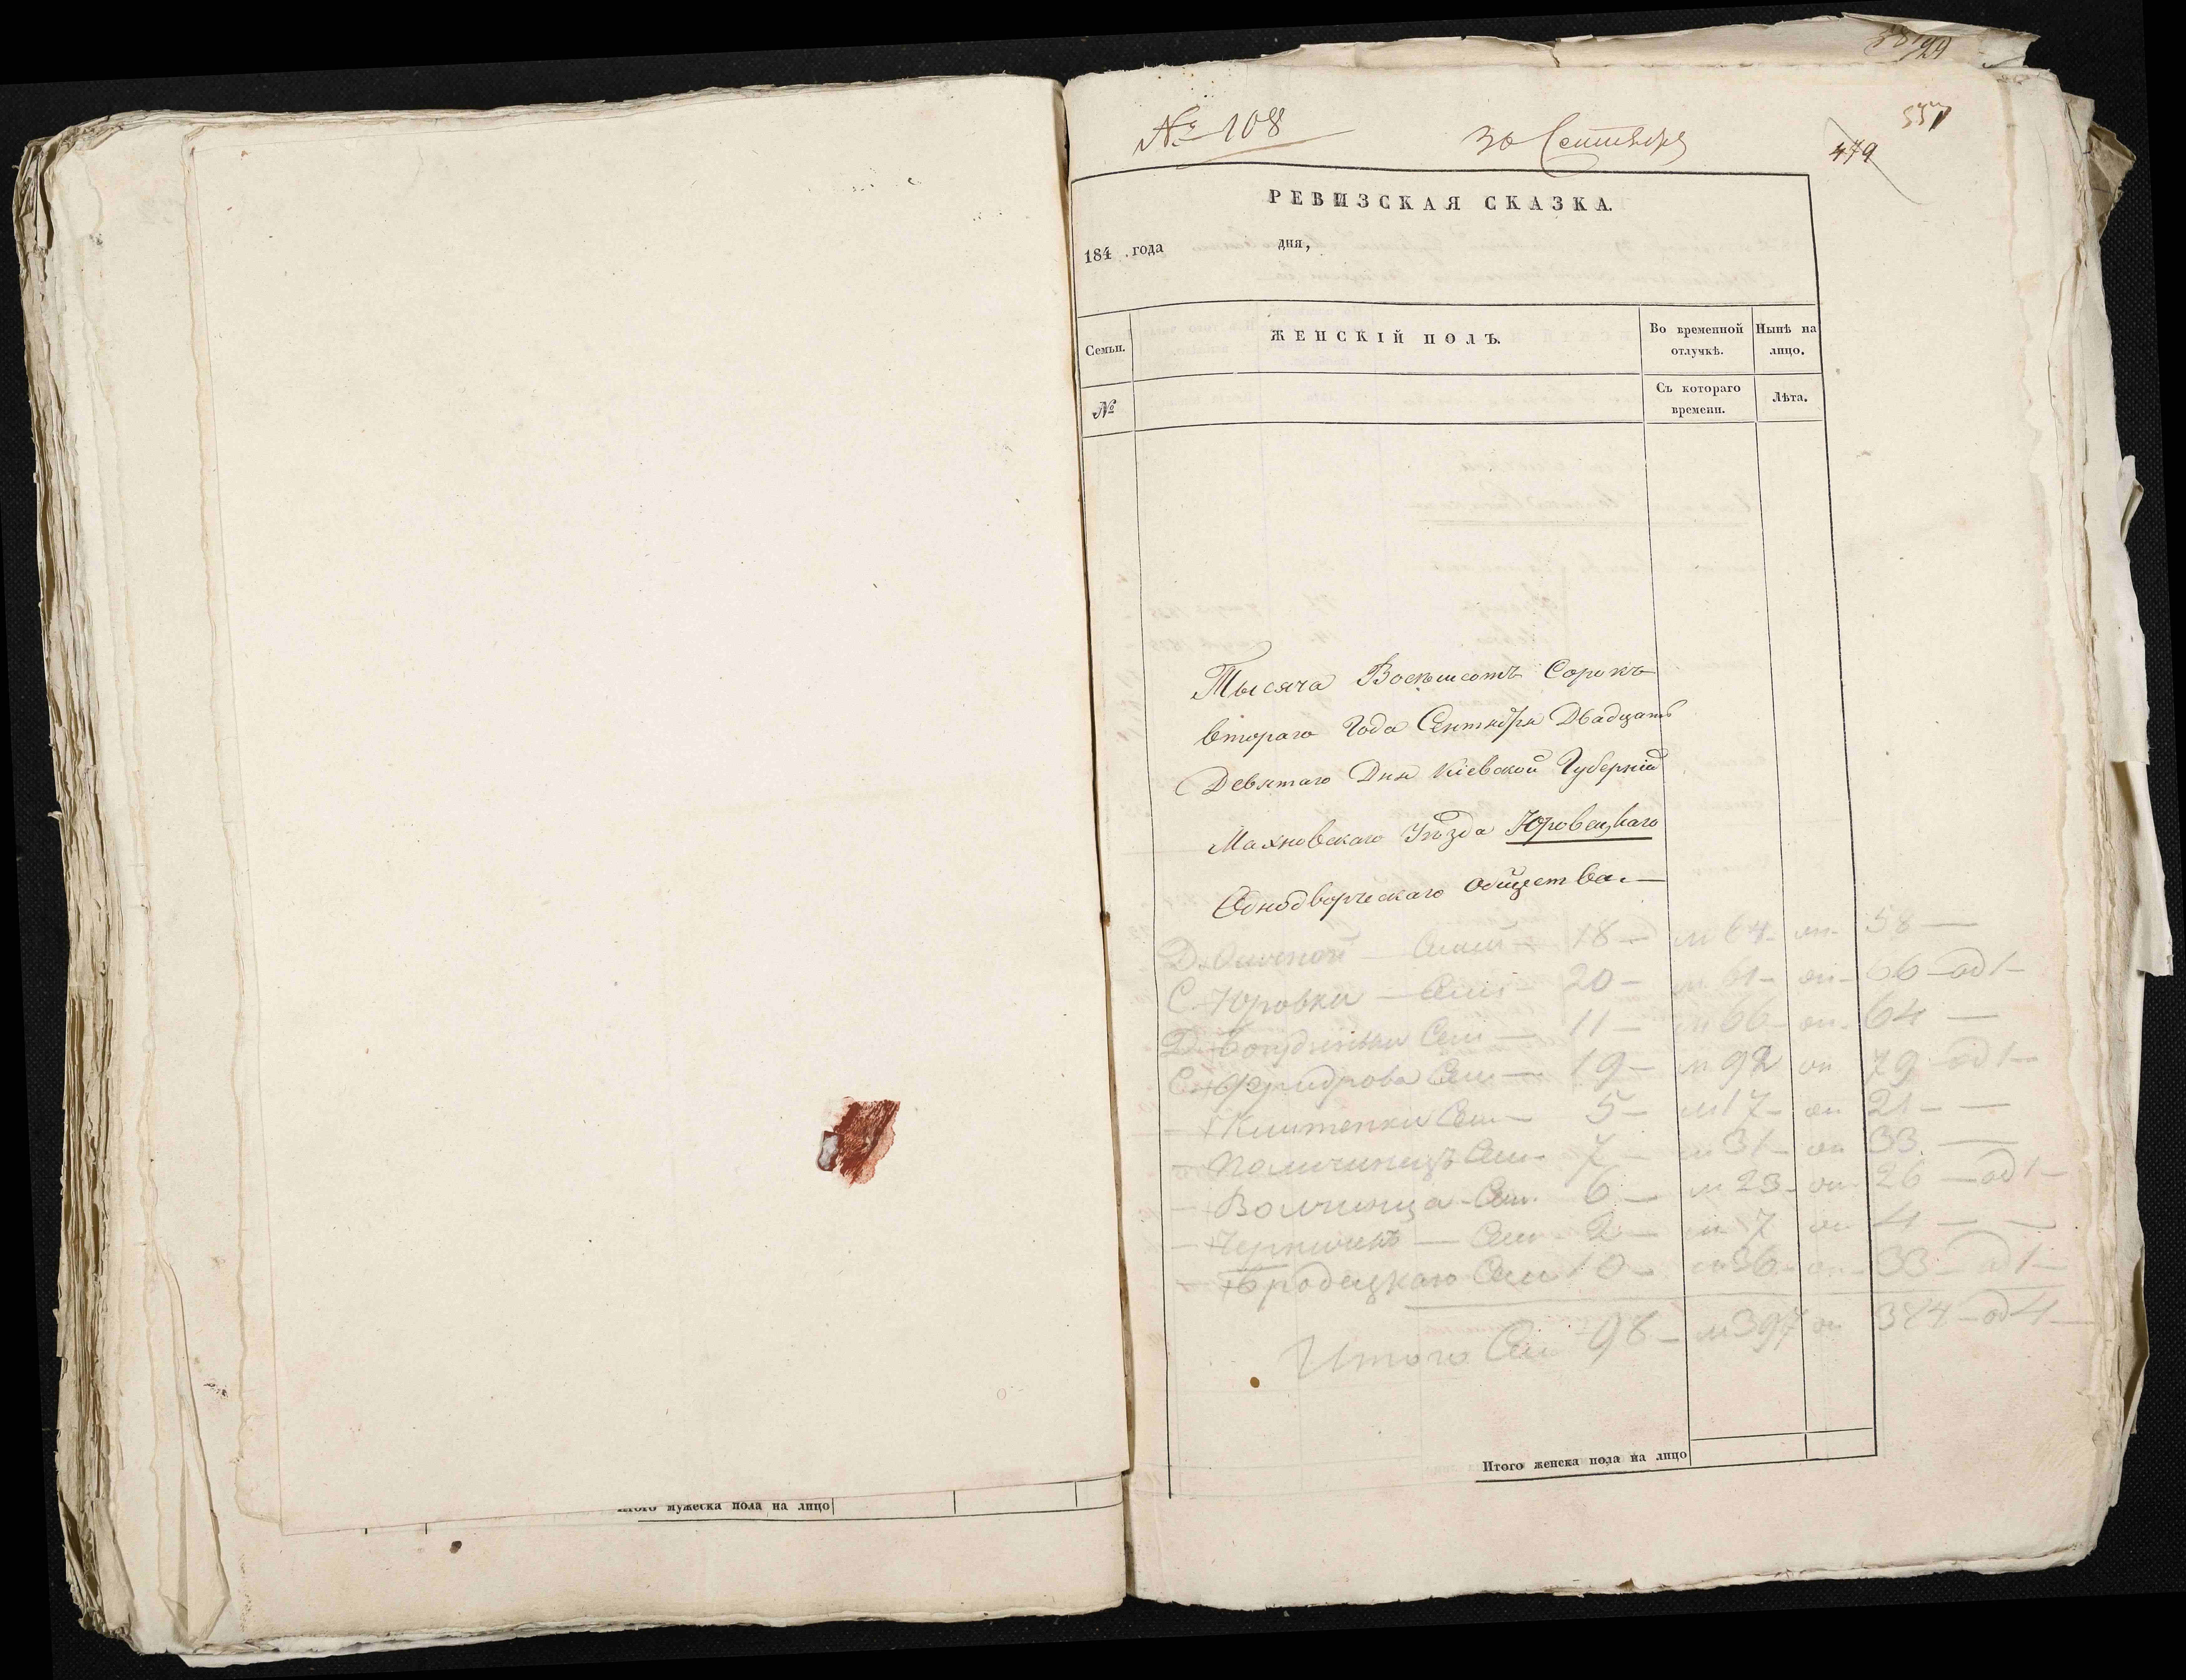 итого мужеска пола на лицо
№ 108
30 Сентября
479
РЕВИЗСКАЯ СКАЗКА.
184 . года дня,
Семьи. ЖЕНСКІЙ ПОЛЪ. Во временной отлучкѣ. Нынѣ на лицо.
№ Съ котораго времени. Лѣта.
Тысяча Восемьсотъ Сорокъ
втораго Года Сентября Двадцать
Девятаго Дня Кіевской Губерніи
Махновскаго Уѣзда Юровецкаго
Однодворческаго общества.—
18 — м 64 — 58 —
С. Юровки — Сем 20 — м 61 — 66 — од 1 —
Сем — 11 — м 66 — 64 —
Сем — 19 — м 92 79 — од 1 —
Сем — 5 — м 17 — 21 — —
Сем — 7 — м 31 — 33 —
Волчинца — Сем 6 — м 23 — 26 — од 1 —
— Сем — 2 — м 7 4 — —
Бродецкаго Сем 10 — м 36 — 33 — од 1 —
Итого Сем 98 — м 397 384 — од 4 —
Итого женска пола на лицо